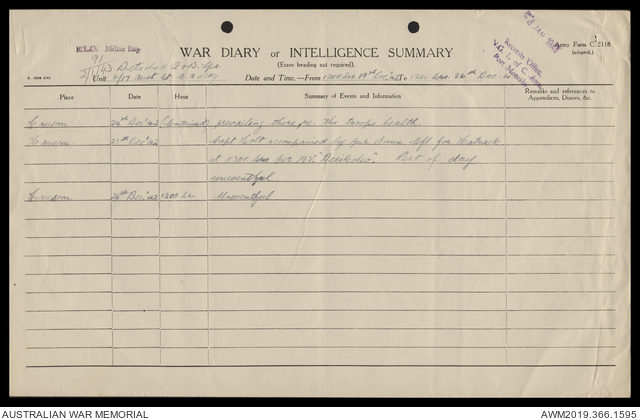 R.L.O. Milne Bay
4 JAN 1943
Records Office,
V.G. L. of C. Area
Port Moresby
Army Form C. 2118
(adapted.)
WAR DIARY or INTELLIGENCE SUMMARY
(Erase heading not required).
2/1/43 Detached A & B. Gps.
Unit 2/17 Aust
Date and Time.—From 1200 hrs 19th Dec. '42 To 1200 hrs. 26th Dec.
Place
Date
Hour
Summary of Events and Information
Remarks and references to
Appendices, Diaries, &c.
24th Dec '42 (Continued) prevailing there re. the troops health.
25th Dec '42 Capt Holt accompanied by left for
at 0700 hrs per M.V. Rest of day
uneventful
26th Dec. '42 1200 hrs Uneventful
AUSTRALIAN WAR MEMORIAL
AWM2019.366.1595